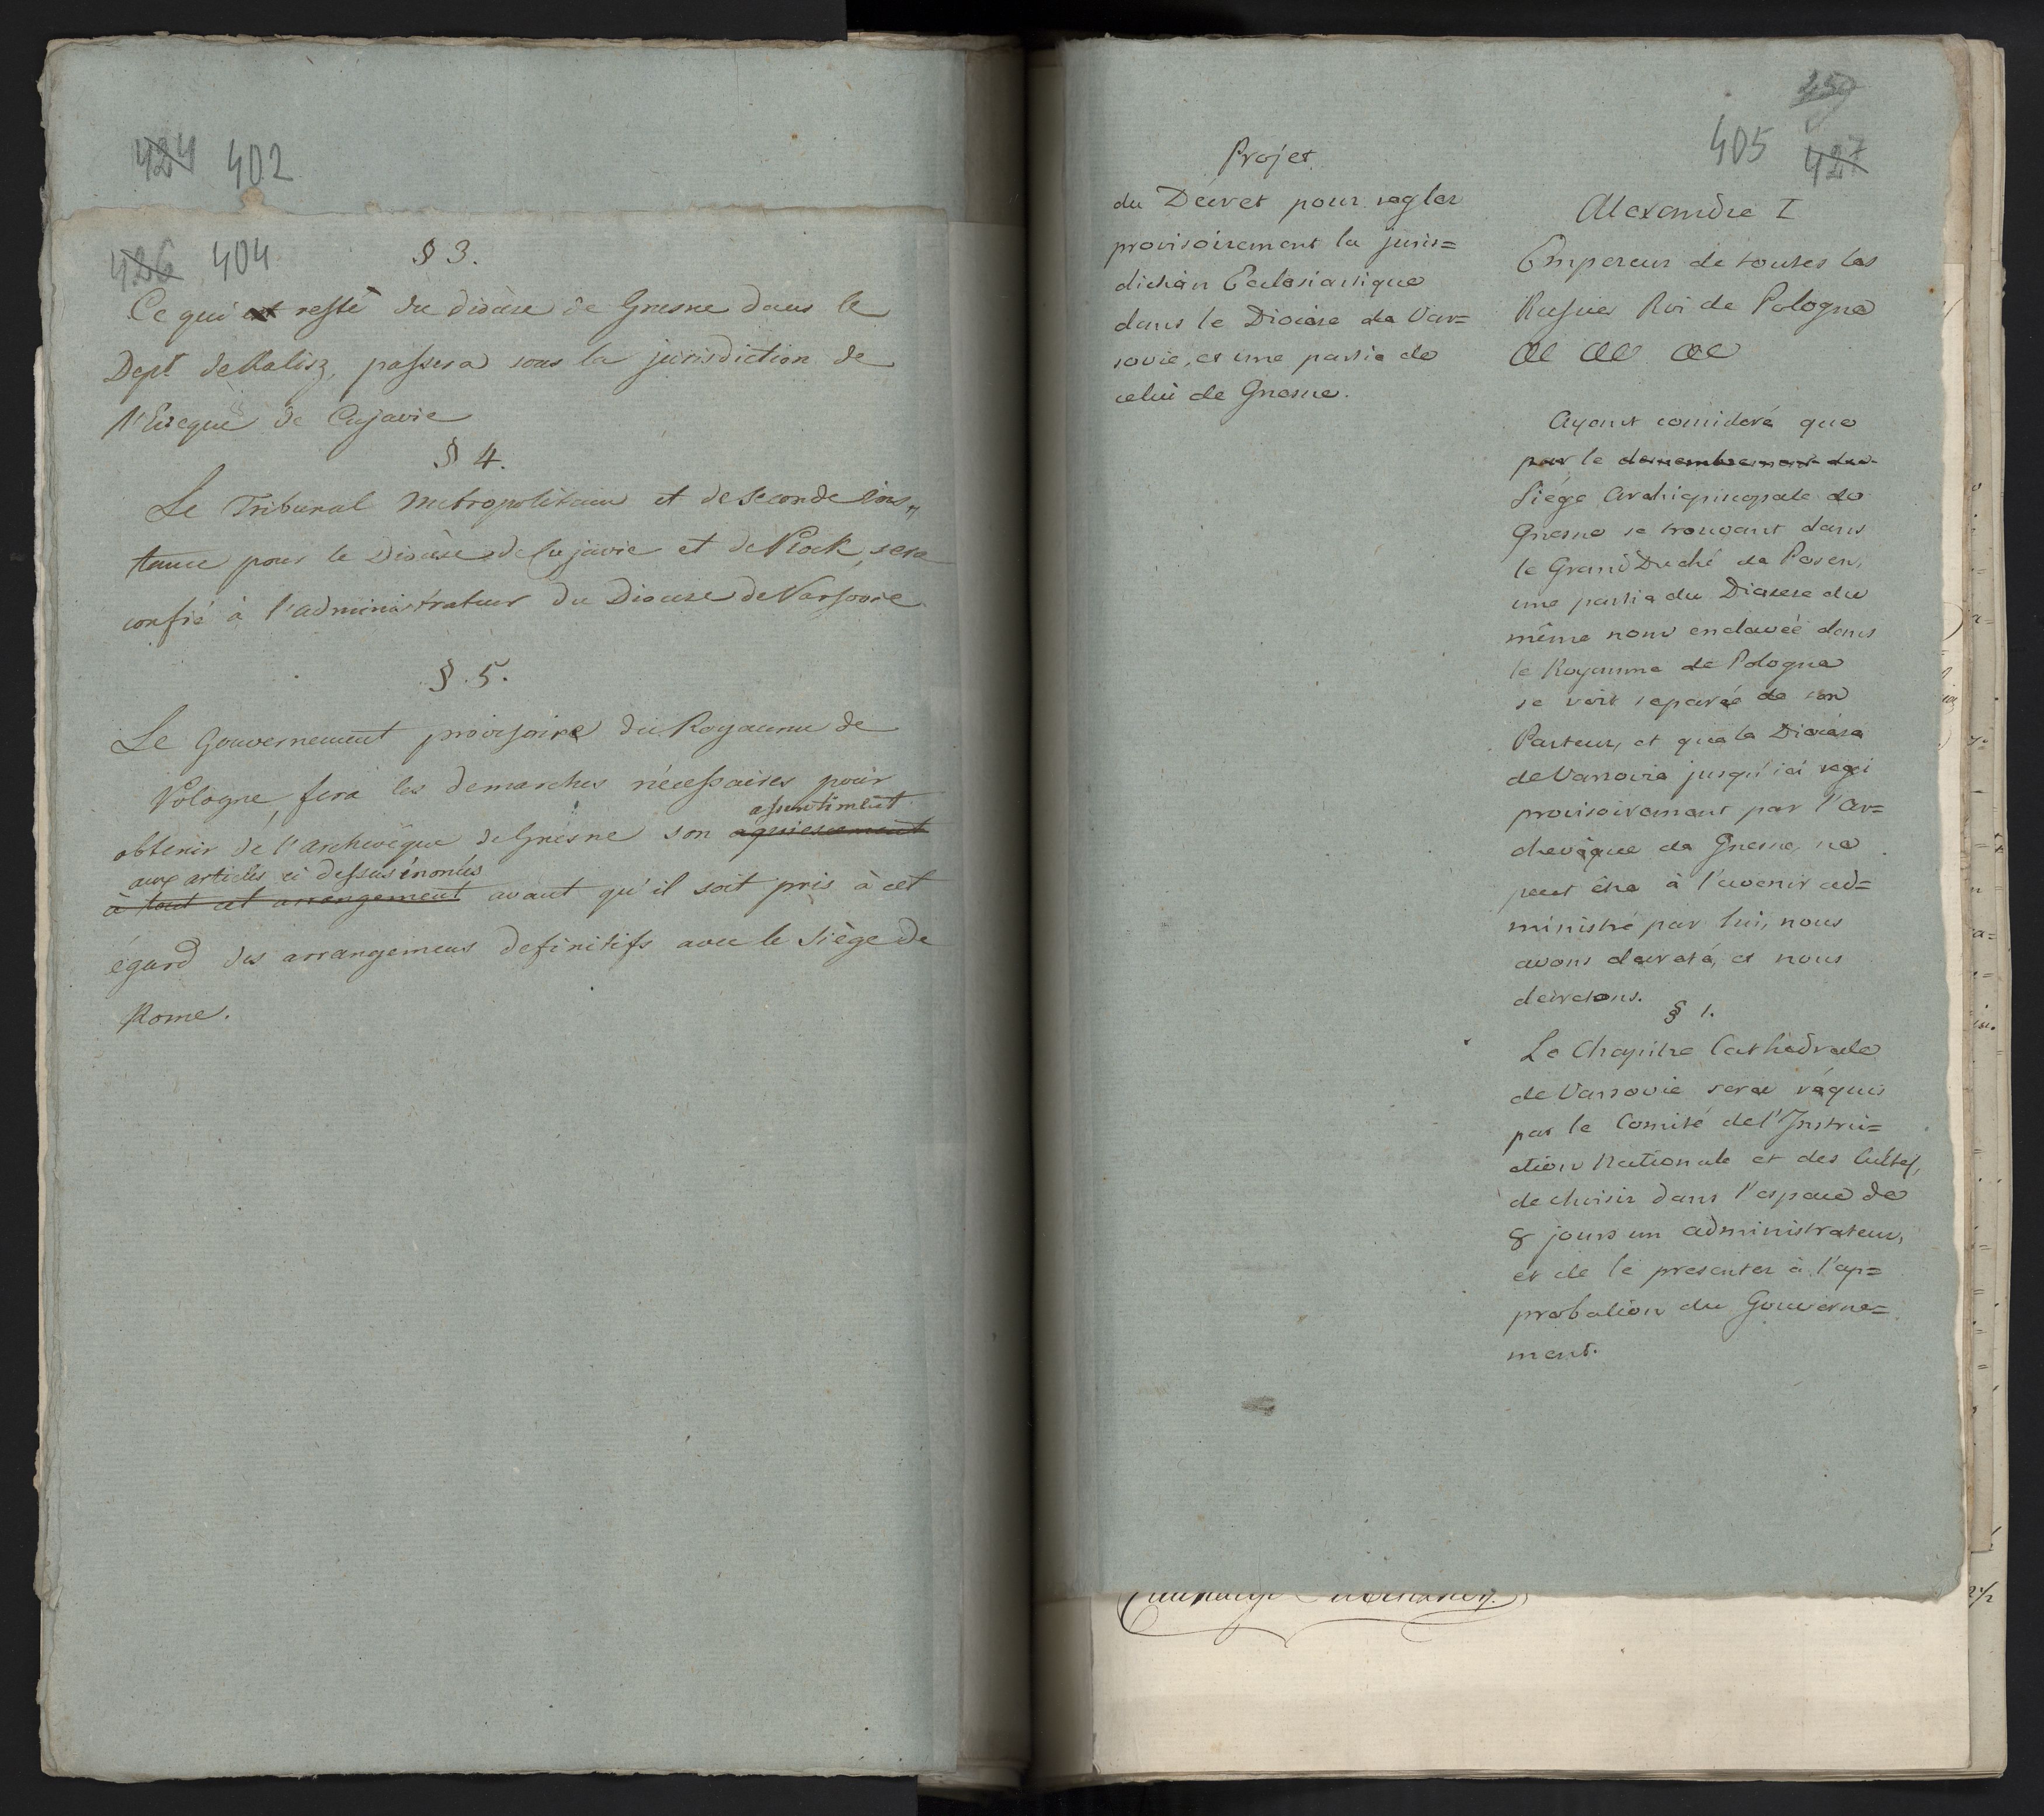 424 402
426 404
§ 3.
Ce qui est resté du diocese de Gnesne dans le
Dept de Kalisz, passera sous la jurisdiction de
l'Eveque de Cujavie
§ 4.
Le Tribunal Metropolitain et de seconde ins„
tance pour le Diocèse de Cujavie et de Plock, sera
confié à l'administrateur du Diocese de Varsovie
§. 5.
Le Gouvernement provisoire du Royaume de
Pologne, fera les demarches nécessaires pour
assentiment
obtenir de l'archevêque de Gnesne son aquiescement
aux articles ci dessus énoncés
à tout cet arrangement avant qu'il soit pris à cet
égard des arrangemens definitifs avec le Siège de
Rome.
459
405 427
Projet
du Decret pour regler
provisoirement la juris=
diction Ecclesiastique
dans le Diocèse de Var=
sovie, et une partie de
celui de Gnesne.
Alexandre I
Empereur de toutes les
Russies Roi de Pologne
&c &c &c
Ayant consideré que
par le demembrement du
Siége Archiepiscopale de
Gnesne se trouvant dans
le Grand Duché de Posen,
une partie du Diocese du
même nom enclavée dans
le Royaume de Pologne
se voit separée de son
Pasteur, et que le Diocèse
de Varsovie jusqu'ici regi
provisoirement par l'Ar=
chevêque de Gnesne, ne
peut être à l'avenir ad=
ministré par lui, nous
avons decreté, et nous
decretons.
§ 1.
Le Chapitre Cathedrale
de Varsovie sera réquis
par le Comité de l'Instru=
ction Nationale et des Cultes,
de choisir dans l'espace de
8 jours un administrateur,
et de le presenter à l'ap=
probation du Gouverne=
ment.